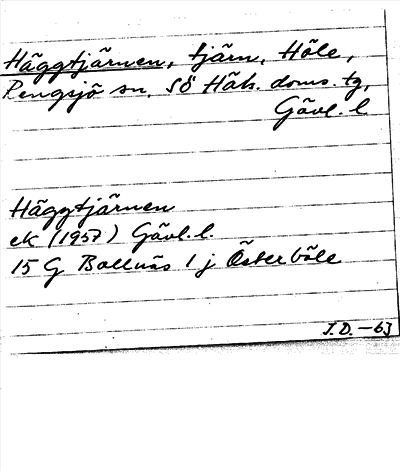 Häggtjärnen, tjärn, Höle,
Rengsjö sn, SÖ Häls. doms. tg,
Gävl. l.
Häggtjärnen
ek (1957) Gävl. l.
15 G Bollnäs 1 j Österböle
J.D. -63